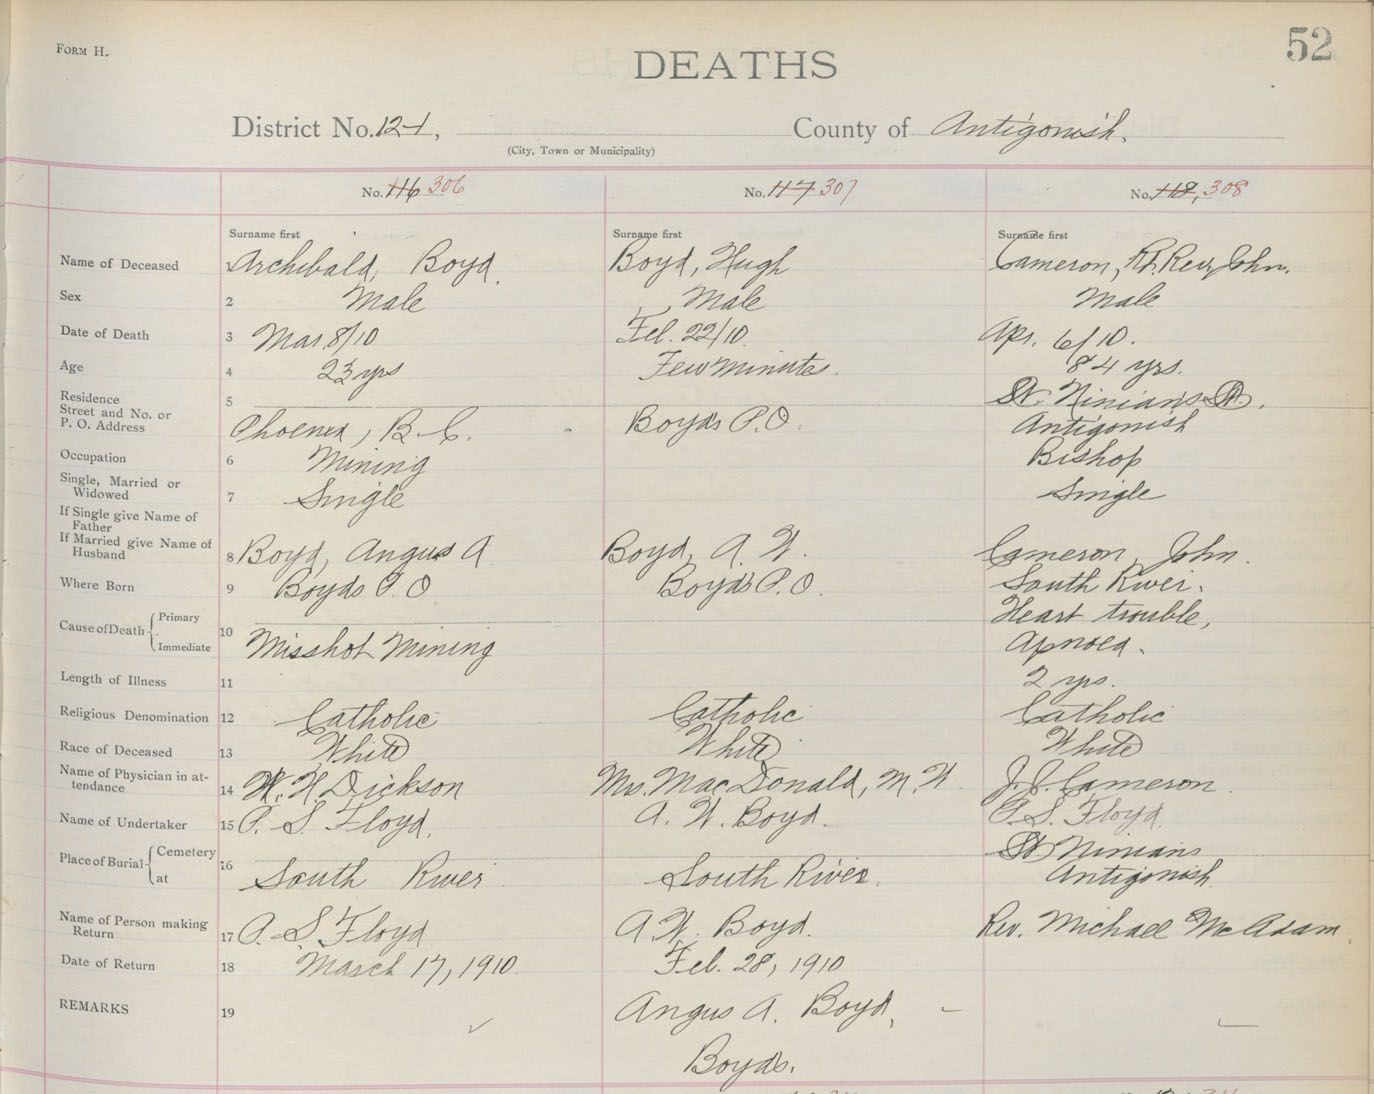 FORM H.
52
DEATHS
District No. 12-1, County of Antigonish.
(City, Town or Municipality)
No. 116 306 No. 117 307 No. 118, 308
Surname first Surname first Surname first
Name of Deceased 1 Archibald, Boyd. Boyd, Hugh Cameron, Rt. Rev. John.
Sex 2 Male Male Male
Date of Death 3 Mar. 8/10 Feb. 22/10. Apr. 6/10.
Age 4 23 yrs Few minutes. 84 yrs.
Residence 5 St. Ninian's St.,
Street and No. or
P. O. Address Phoenix, B.C. Boyds P.O. Antigonish
Occupation 6 Mining Bishop
Single, Married or
Widowed 7 Single Single
If Single give Name of
Father
If Married give Name of
Husband 8 Boyd, Angus A. Boyd, A. W. Cameron, John.
Where Born 9 Boyds P.O Boyds P.O. South River.
Cause of Death Primary Heart trouble,
10
Immediate Misshot Mining Apnoea.
Length of Illness 11 2 yrs.
Religious Denomination 12 Catholic Catholic Catholic
Race of Deceased 13 White White White
Name of Physician in at-
tendance 14 W. H Dickson Mrs. MacDonald, M.W. J. J. Cameron.
Name of Undertaker 15 P. S. Floyd. A. W. Boyd. P. S. Floyd.
Place of Burial Cemetery 16 St Ninians
at South River South River. Antigonish.
Name of Person making
Return 17 P. S. Floyd A. W. Boyd. Rev. Michael McAdam
Date of Return 18 March 17, 1910. Feb. 28, 1910
REMARKS 19 Angus A. Boyd,
Boyds.